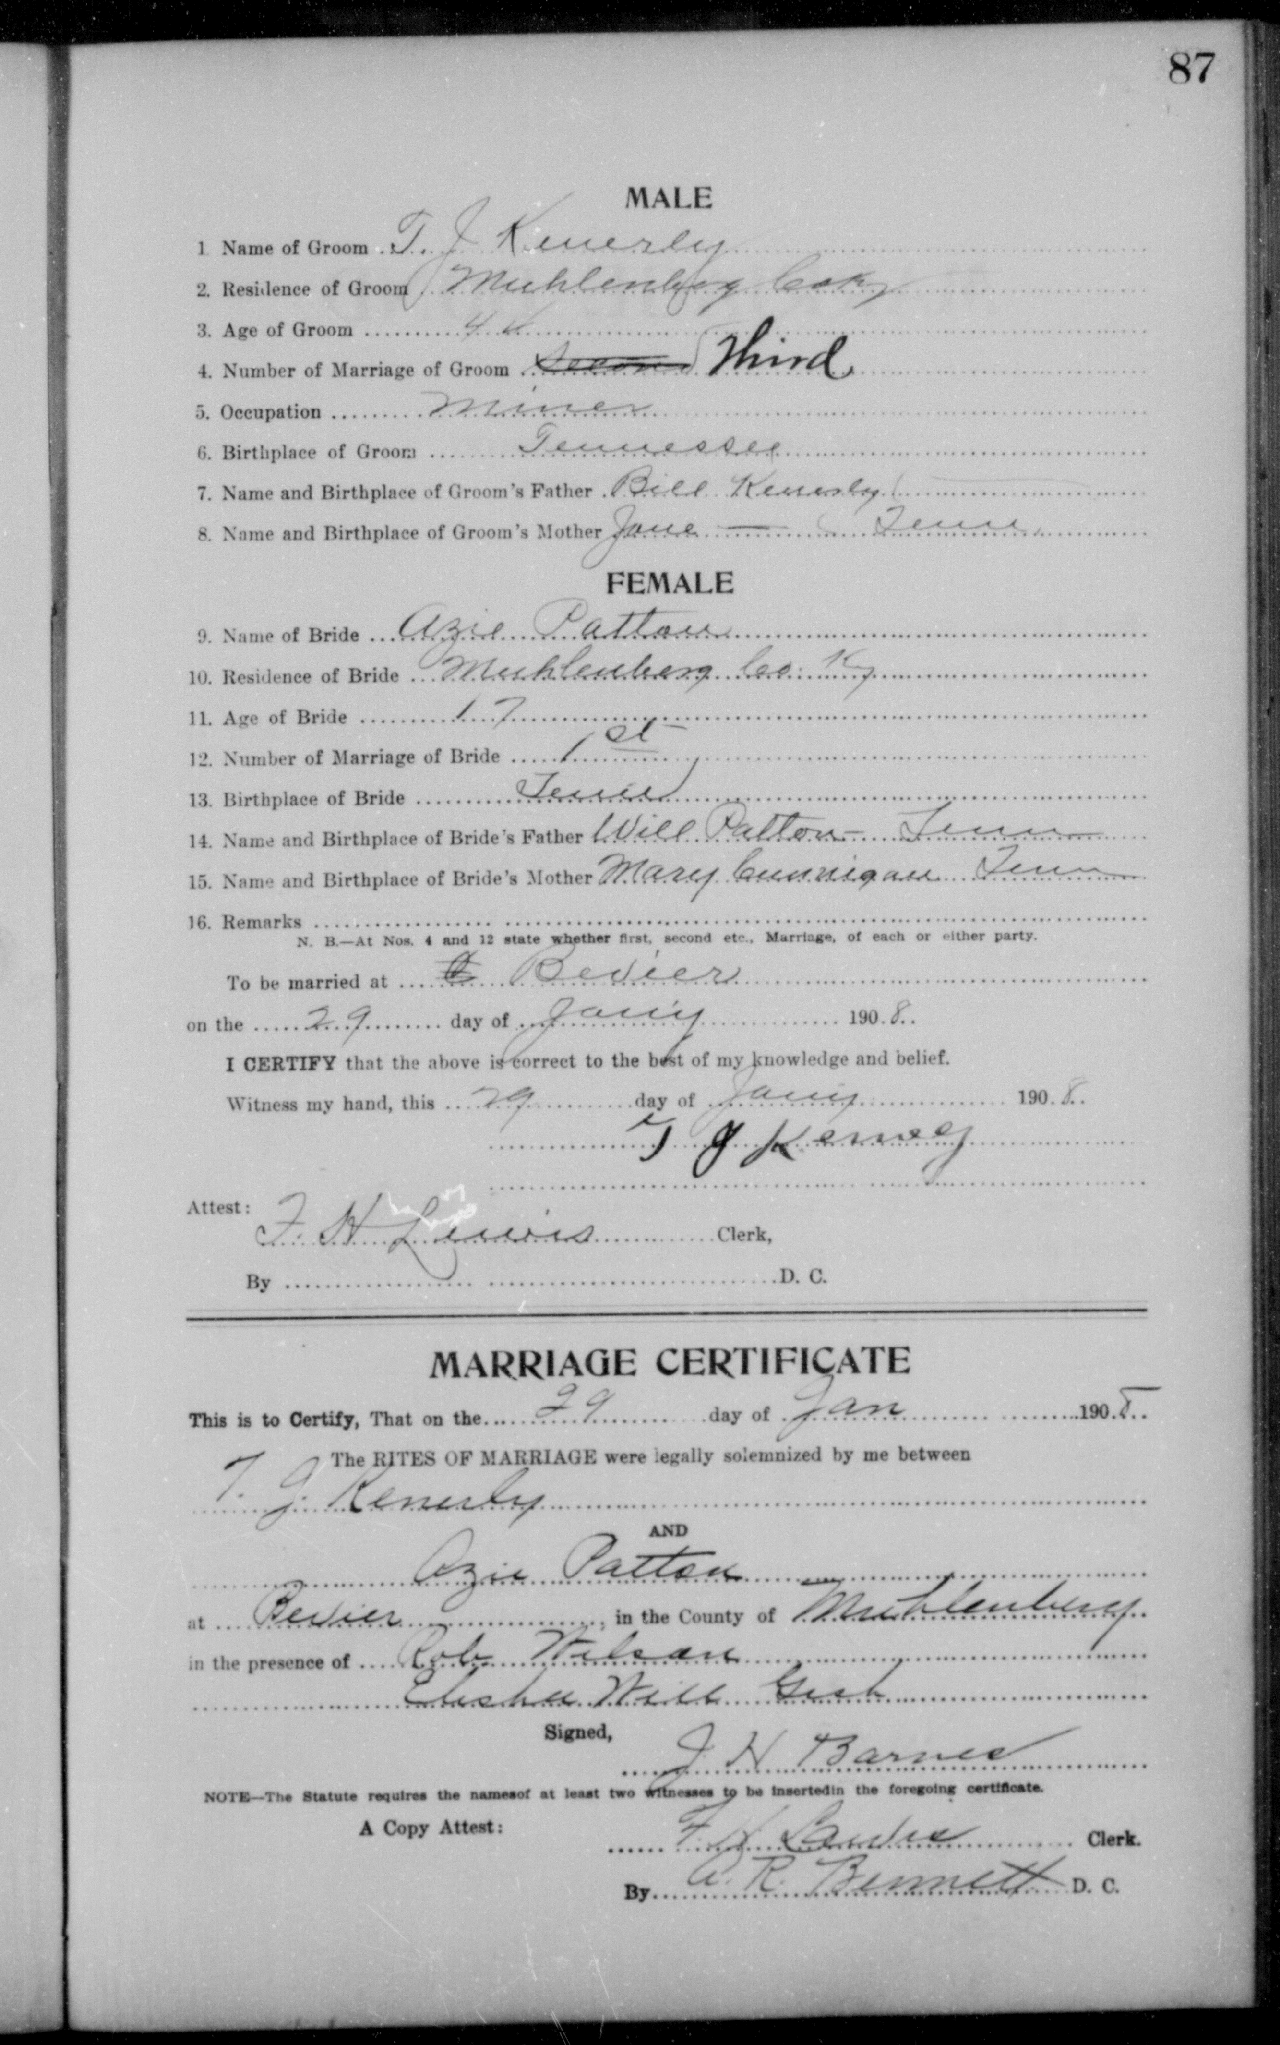 87
MALE
1 Name of Groom T. J Kenerly
2. Residence of Groom Muhlenberg Co Ky
3. Age of Groom
4. Number of Marriage of Groom Second Third
5. Occupation Miner
6. Birthplace of Groom Tennessee
7. Name and Birthplace of Groom's Father Bill Kenerly
8. Name and Birthplace of Groom's Mother Jane — Tenn
FEMALE
9. Name of Bride Azie Patton
10. Residence of Bride Muhlenberg Co. Ky
11. Age of Bride 17
12. Number of Marriage of Bride 1st
13. Birthplace of Bride Tenn
14. Name and Birthplace of Bride's Father Will Patton – Tenn
15. Name and Birthplace of Bride's Mother Mary Cunnigan Tenn
16. Remarks
N. B.—At Nos. 4 and 12 state whether first, second etc., Marriage, of each or either party.
To be married at Bevier
on the 29 day of Jany 1908.
I CERTIFY that the above is correct to the best of my knowledge and belief.
Witness my hand, this 29 day of Jany 1908.
T J
Attest:
F. H Lewis Clerk,
By D. C.
MARRIAGE CERTIFICATE
This is to Certify, That on the 29 day of Jan 1908.
The RITES OF MARRIAGE were legally solemnized by me between
T. J. Kenerly
AND
Azie Patton
at Bevier, in the County of Muhlenberg
in the presence of Rob Wilson
Elisha Will Gish
Signed,
J H Barnes
NOTE—The Statute requires the namesof at least two witnesses to be insertedin the foregoing certificate.
A Copy Attest:
F. H Lewis Clerk.
By A. R. Bennett D. C.